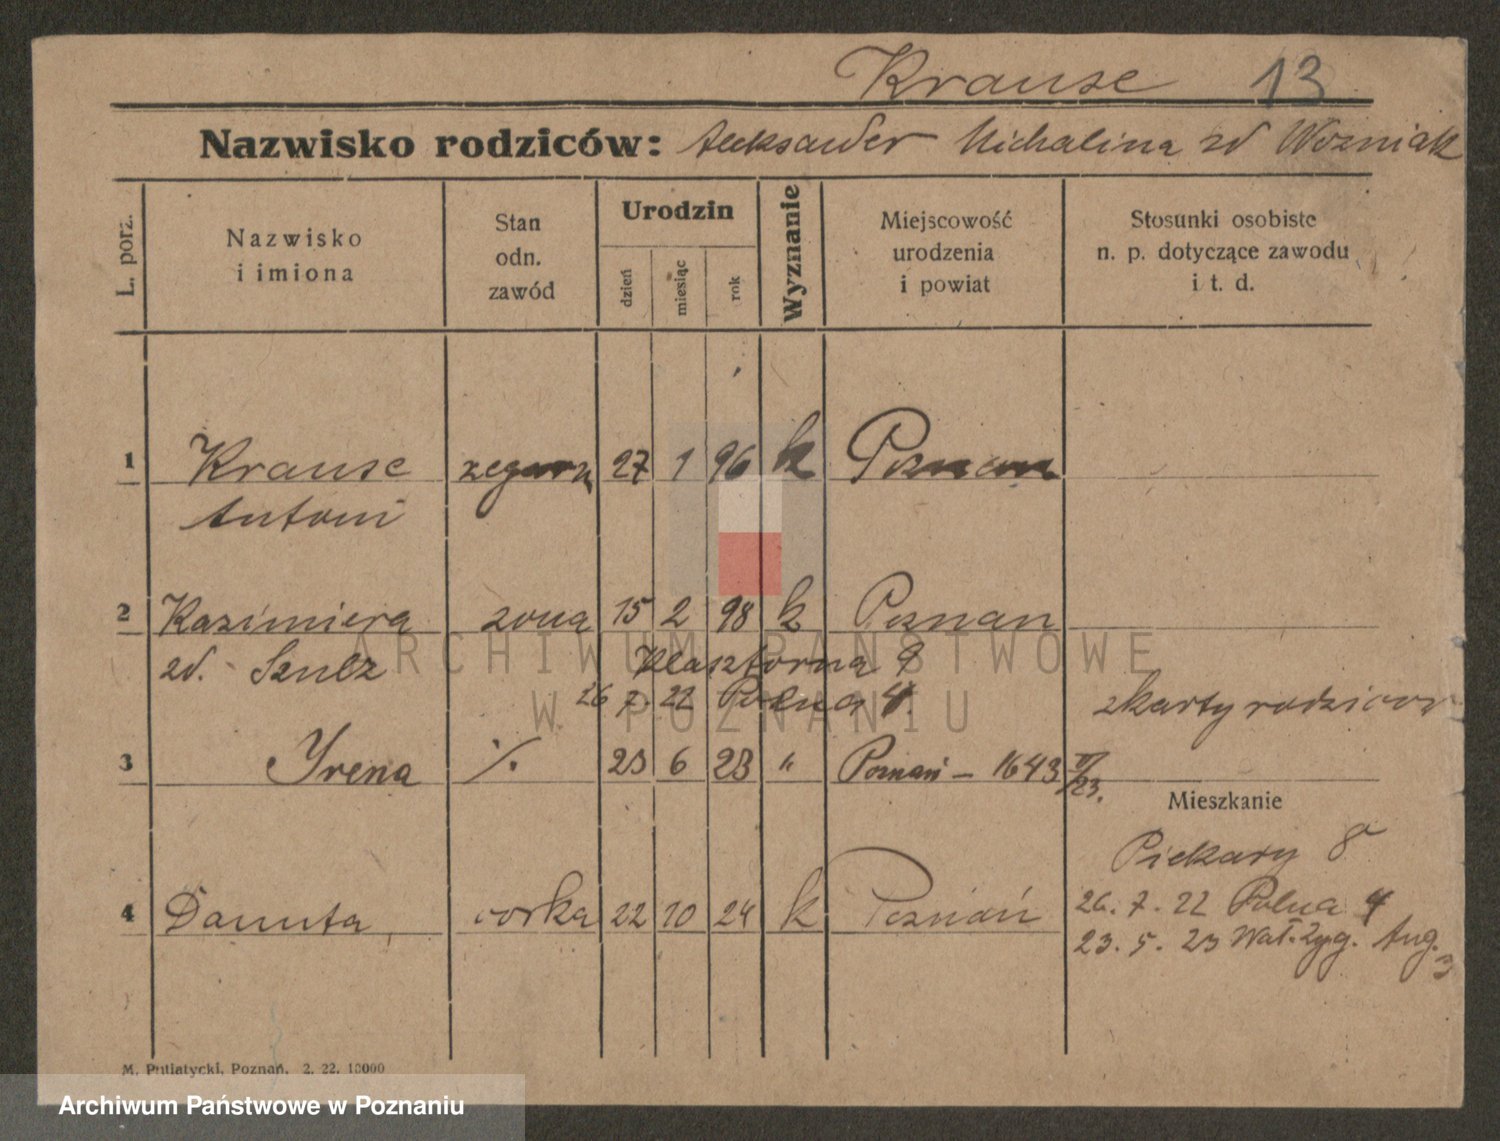 Krause 13
Nazwisko rodziców: Aleksander Michalina zd Wozniak
L. porz.
Nazwisko
i imiona
Stan
odn.
zawód
Urodzin
dzień
miesiąc
rok
Wyznanie
Miejscowość
urodzenia
i powiat
Stosunki osobiste
n. p. dotyczące zawodu
i t. d.
1 Krause zegarm 27 1 96 k Poznan
Antoni
2 Kazimiera zona 15 2 98 k Poznan
zd. Szulz Klasztorna 9
26 7. 22 Polna 4. z karty rodzicow
3 Yrena ·/. 23 6 23 " Poznań – 1643 VI/23.
Mieszkanie
Piekary 8
4 Danuta, corka 22 10 24 k Poznań
26. 7. 22 Polna 4
23. 5. 23 Wał. Zyg. Aug. 3
M. Putiatycki, Poznań. 2. 22. 10000
ARCHIWUM PAŃSTWOWE
W POZNANIU
Archiwum Państwowe w Poznaniu